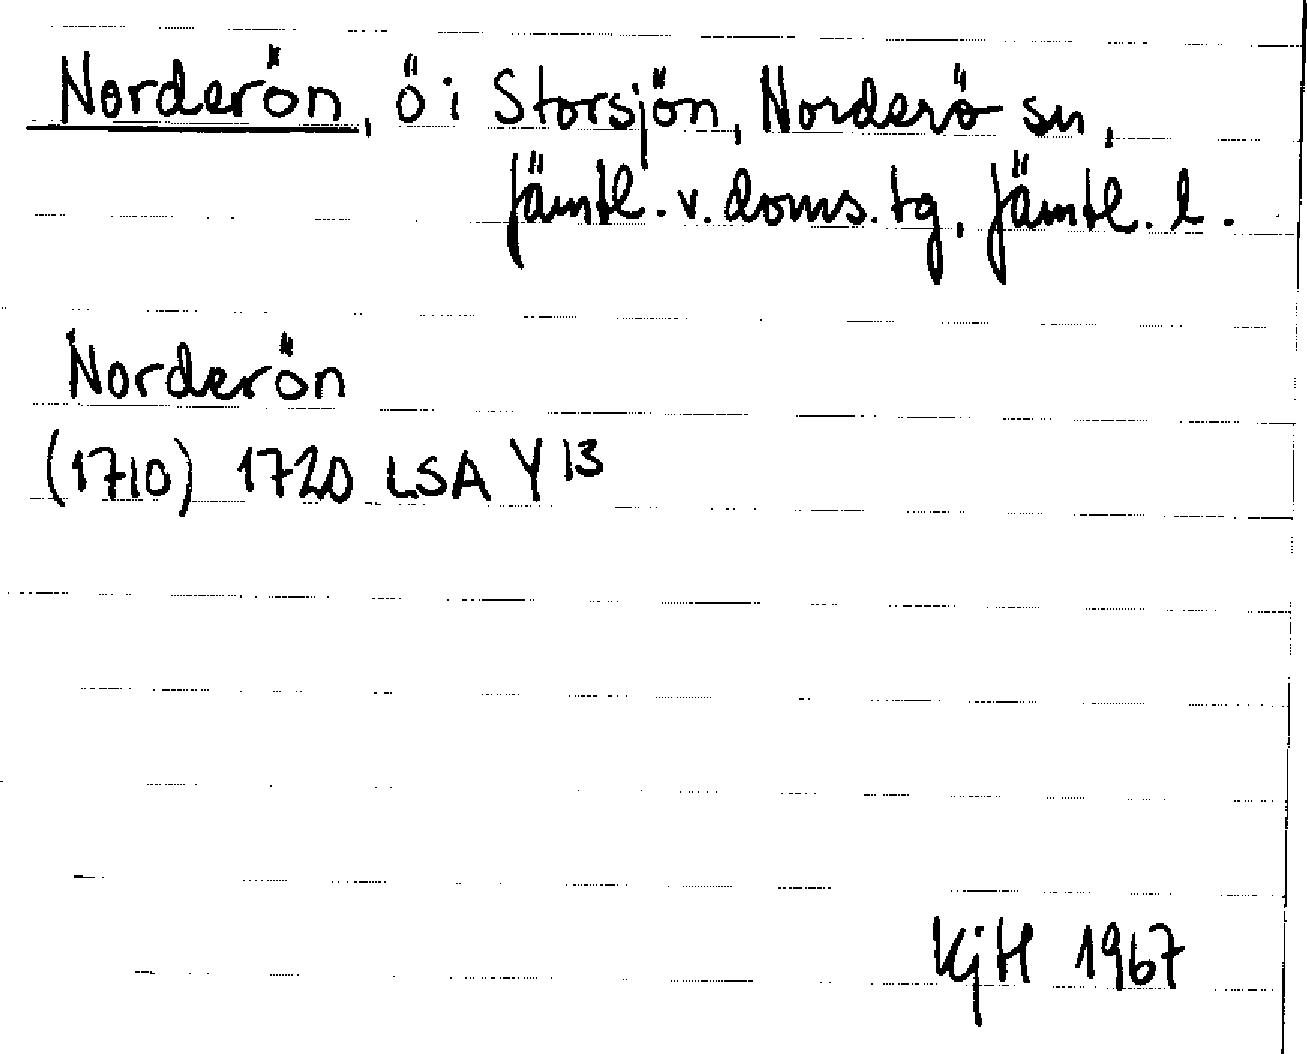 Norderön, ö i Storsjön, Norderö sn,
Jämtl. v. doms. tg, Jämtl. l.
Norderön
(1710) 1720 LSA Y 13
KjH 1967